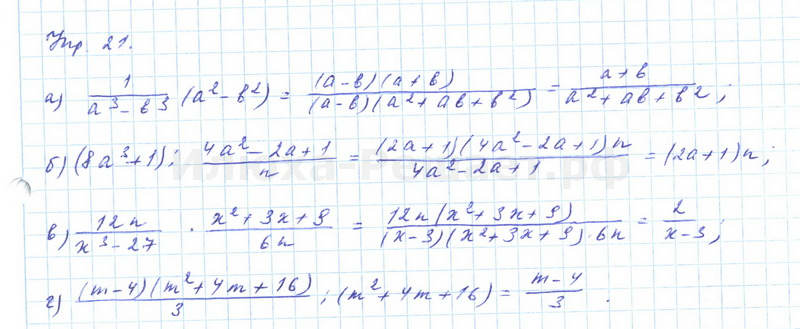 Упр. 21.
а) 1/(a³-b³) (a²-b²) = (a-b)(a+b)/((a-b)(a²+ab+b²)) = (a+b)/(a²+ab+b²);
б) (8a³+1); (4a²-2a+1)/n = (2a+1)(4a²-2a+1)n/(4a²-2a+1) = (2a+1)n;
в) 12n/(x³-27) · (x²+3x+9)/6n = 12n(x²+3x+9)/((x-3)(x²+3x+9)·6n) = 2/(x-3);
г) (m-4)(m²+4m+16)/3 ; (m²+4m+16) = (m-4)/3 .